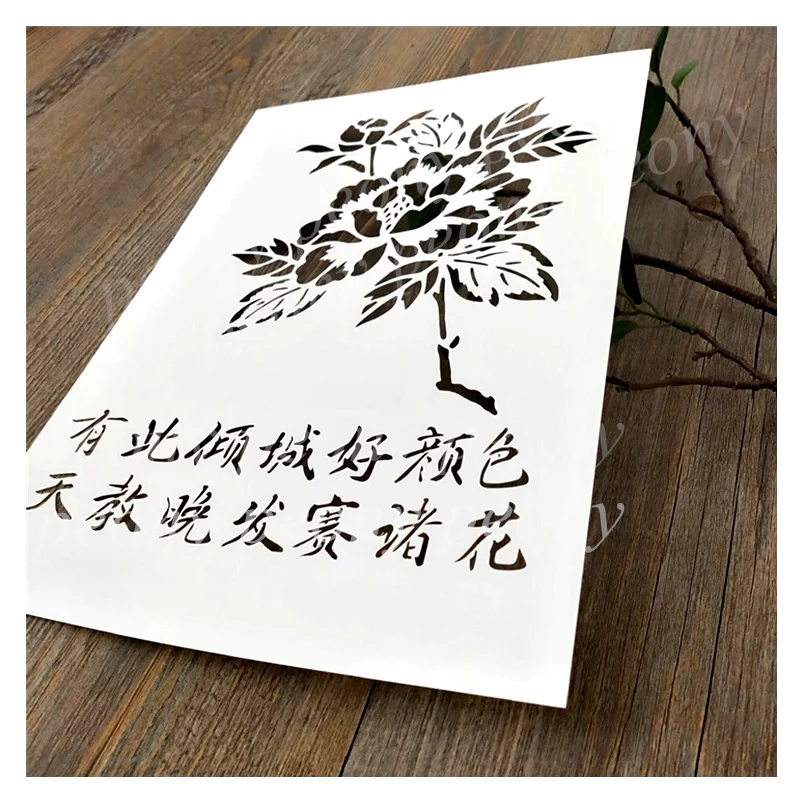 有此倾城好颜色
天教晚发赛诸花
peony